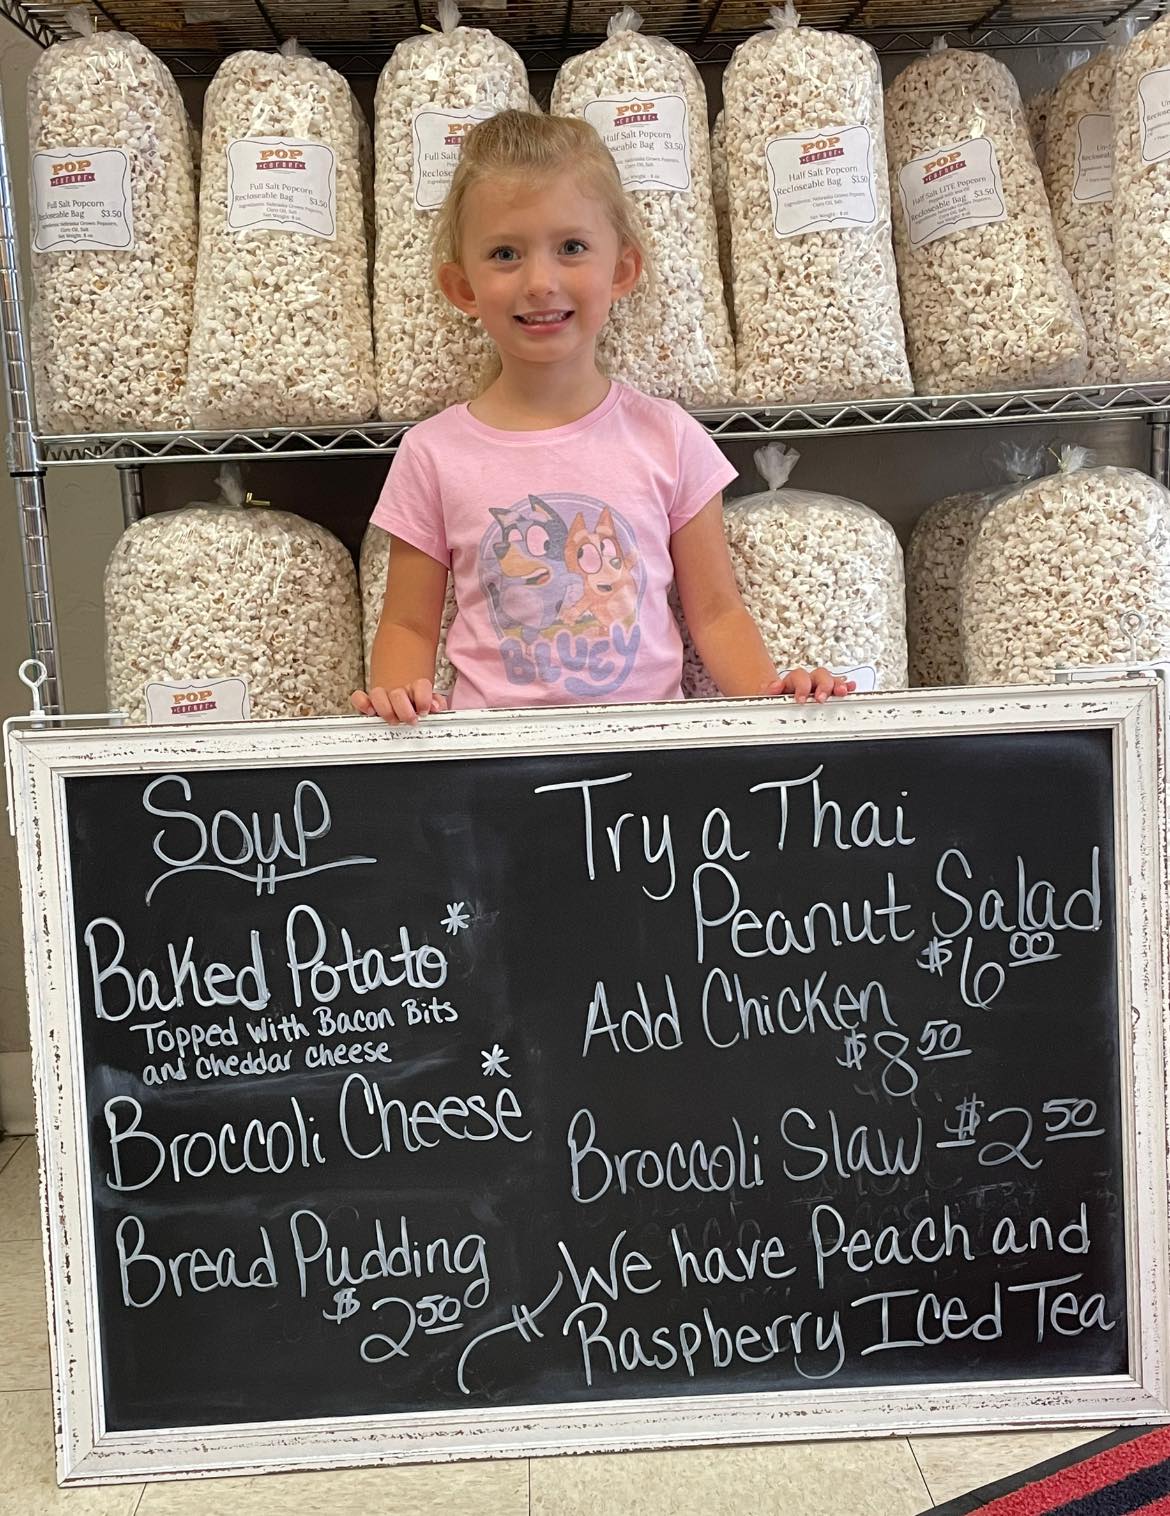 POP
CORNER
Full Salt Popcorn
Recloseable Bag $3.50
Ingredients: Nebraska Grown Popcorn,
Corn Oil, Salt
Net Weight: 8 oz
POP
CORNER
Full Salt Popcorn
Recloseable Bag $3.50
Ingredients: Nebraska Grown Popcorn,
Corn Oil, Salt
Net Weight: 8 oz
Full Salt
Recloseable
POP
CORNER
Half Salt Popcorn
Recloseable Bag $3.50
POP
CORNER
Half Salt Popcorn
Recloseable Bag $3.50
Ingredients: Nebraska Grown Popcorn,
Corn Oil, Salt
Net Weight: 8 oz
POP
CORNER
Half Salt LITE Popcorn
Recloseable Bag $3.50
BLUEY
POP
CORNER
Soup
Baked Potato*
Topped with Bacon Bits
and cheddar cheese
Broccoli Cheese*
Bread Pudding
$2.50
Try a Thai
Peanut Salad
$6.00
Add Chicken
$8.50
Broccoli Slaw $2.50
We have Peach and
Raspberry Iced Tea